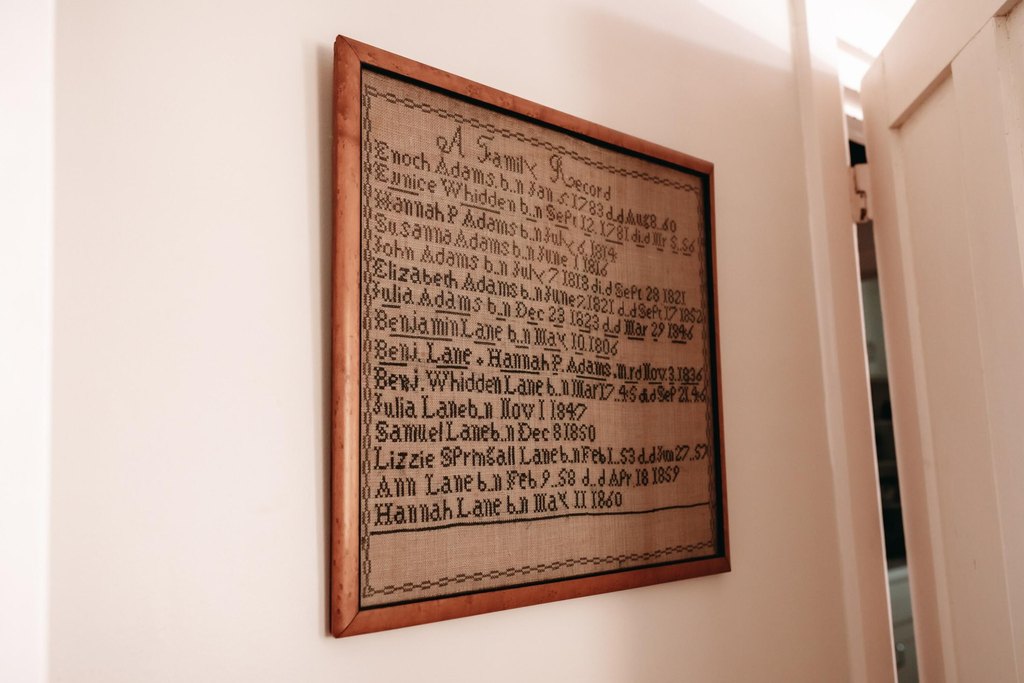 A Family Record
Enoch Adams b..n Jan 5. 1783 d..d Aug 8. 60
Eunice Whidden b..n Sept 12. 1781 di.d Mr 5. 56
Hannah P. Adams b..n July 6 1814
Susanna Adams b..n June 1 1816
John Adams b.n July 7 1818 di.d Sept 28 1821
Elizabeth Adams b.n June 7. 1821 d..d Sept 17 1852
Julia Adams b..n Dec 23 1823 d..d Mar 29 1846
Benjamin Lane b..n May. 10. 1806
Benj. Lane & Hannah P. Adams. m.rd Nov. 3. 1836
Benj. Whidden Lane b..n Mar 17. 45 di.d Sep 21. 46
Julia Lane b..n Nov 1 1847
Samuel Lane b..n Dec 8 1850
Lizzie Springall Lane b..n Feb 1. 53 d..d Jun 27. 57
Ann Lane b..n Feb 9. 58 d..d Apr 18 1859
Hannah Lane b.n May. 11 1860